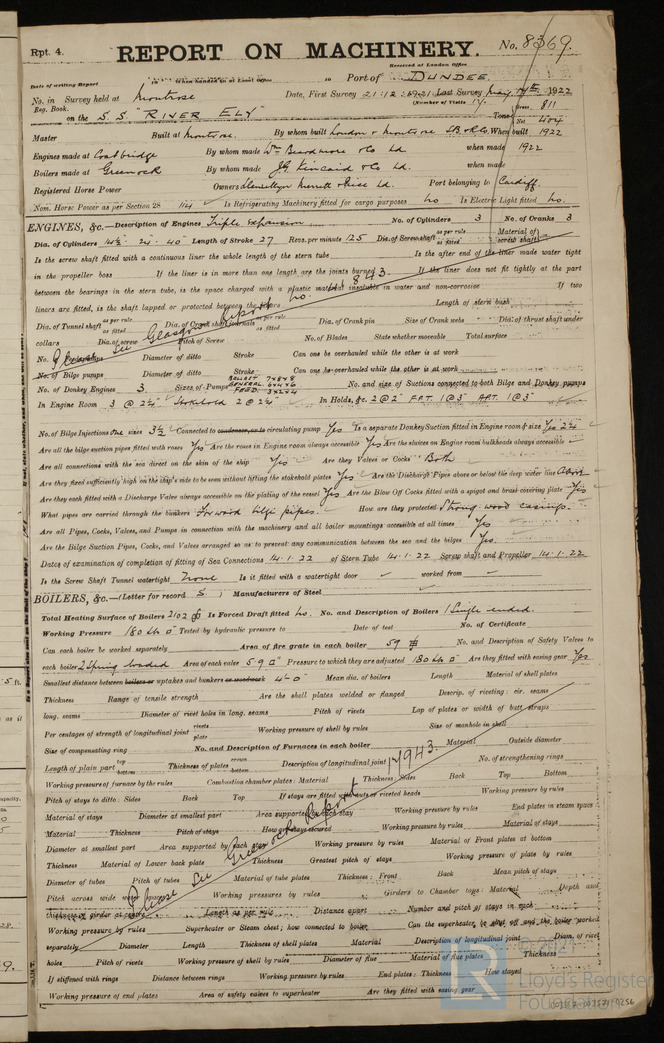 Rpt. 4.
REPORT ON MACHINERY.
No. 8369.
Received at London Office
Date of writing Report
When handed in at Local Office
Port of DUNDEE.
No. in Survey held at Montrose
Date, First Survey 21:12:1921 Last Survey May 1922
Reg. Book.
(Number of Visits
on the S.S. "RIVER ELY"
Tons
Gross 811
Net 404
Master Built at Montrose. By whom built London & Montrose S.B. & Co. When built 1922
Engines made at Coatbridge By whom made Wm Beardmore & Co Ld. when made 1922
Boilers made at Greenock By whom made J.G. Kincaid & Co Ld. when made
Registered Horse Power Owners Llewellyn Merrett & Price Ld. Port belonging to Cardiff.
Nom. Horse Power as per Section 28 114 Is Refrigerating Machinery fitted for cargo purposes No Is Electric Light fitted No.
ENGINES, &c.—Description of Engines Triple expansion No. of Cylinders 3 No. of Cranks 3
Dia. of Cylinders 24 · 40 Length of Stroke 27 Revs. per minute 125 Dia. of Screw shaft as per rule as fitted Material of screw shaft
Is the screw shaft fitted with a continuous liner the whole length of the stern tube Is the after end of the liner made water tight
in the propeller boss If the liner is in more than one length are the joints burned If the liner does not fit tightly at the part
between the bearings in the stern tube, is the space charged with a plastic material insoluble in water and non-corrosive If two
liners are fitted, is the shaft lapped or protected between the liners Length of stern bush
Dia. of Tunnel shaft as per rule as fitted Dia. of Crank shaft journals as per rule as fitted Dia. of Crank pin Size of Crank webs Dia. of thrust shaft under
collars Dia. of screw Pitch of Screw No. of Blades State whether moveable Total surface
See Glasgow Report No.
No. of Diameter of ditto Stroke Can one be overhauled while the other is at work
No. of Bilge pumps Diameter of ditto Stroke Can one be overhauled while the other is at work
No. of Donkey Engines 3. Sizes of Pumps BALLAST 7×8×8 GENERAL 6×4×6 FEED No. and size of Suctions connected to both Bilge and Donkey pumps
In Engine Room 3 @ 2¼" Stokehold 2 @ 2¼" In Holds, &c. 2 @ 2" F.P.T. 1 @ 3" A.P.T. 1 @ 3"
No. of Bilge Injections one sizes 3½ Connected to condenser, or to circulating pump Yes Is a separate Donkey Suction fitted in Engine room & size Yes 2¼
Are all the bilge suction pipes fitted with roses Yes Are the roses in Engine room always accessible Yes Are the sluices on Engine room bulkheads always accessible
Are all connections with the sea direct on the skin of the ship Yes Are they Valves or Cocks Both
Are they fixed sufficiently high on the ship's side to be seen without lifting the stokehold plates Yes Are the Discharge Pipes above or below the deep water line Above
Are they each fitted with a Discharge Valve always accessible on the plating of the vessel Yes Are the Blow Off Cocks fitted with a spigot and brass covering plate Yes
What pipes are carried through the bunkers Forward bilge pipes. How are they protected Strong wood casings.
Are all Pipes, Cocks, Valves, and Pumps in connection with the machinery and all boiler mountings accessible at all times Yes
Are the Bilge Suction Pipes, Cocks, and Valves arranged so as to prevent any communication between the sea and the bilges Yes.
Dates of examination of completion of fitting of Sea Connections 14·1·22 of Stern Tube 14·1·22 Screw shaft and Propeller 14·1·22
Is the Screw Shaft Tunnel watertight None Is it fitted with a watertight door worked from
BOILERS, &c.—(Letter for record S.) Manufacturers of Steel
Total Heating Surface of Boilers 2102 Is Forced Draft fitted No. No. and Description of Boilers 1 Single ended.
Working Pressure 180 Lb Tested by hydraulic pressure to Date of test No. of Certificate
Can each boiler be worked separately Area of fire grate in each boiler 59 No. and Description of Safety Valves to
each boiler 2 Spring loaded Area of each valve 5·9 Pressure to which they are adjusted 180 Lb Are they fitted with easing gear Yes
Smallest distance between boilers or uptakes and bunkers or woodwork 4'-0" Mean dia. of boilers Length Material of shell plates
Thickness Range of tensile strength Are the shell plates welded or flanged Descrip. of riveting: cir. seams
long. seams Diameter of rivet holes in long. seams Pitch of rivets Lap of plates or width of butt straps
Per centages of strength of longitudinal joint rivets plate Working pressure of shell by rules Size of manhole in shell
Size of compensating ring No. and Description of Furnaces in each boiler Material Outside diameter
Length of plain part top bottom Thickness of plates crown bottom Description of longitudinal joint No. of strengthening rings
Working pressure of furnace by the rules Combustion chamber plates: Material Thickness: Sides Back Top Bottom
Pitch of stays to ditto: Sides Back Top If stays are fitted with nuts or riveted heads Working pressure by rules
Material of stays Diameter at smallest part Area supported by each stay Working pressure by rules End plates in steam space
Material Thickness Pitch of stays How are stays secured Working pressure by rules Material of stays
Diameter at smallest part Area supported by each stay Working pressure by rules Material of Front plates at bottom
Thickness Material of Lower back plate Thickness Greatest pitch of stays Working pressure of plate by rules
Diameter of tubes Pitch of tubes Material of tube plates Thickness: Front Back Mean pitch of stays
Pitch across wide water spaces Working pressures by rules Girders to Chamber tops: Material Depth and
thickness of girder at centre Length as per rule Distance apart Number and pitch of stays in each
Working pressure by rules Superheater or Steam chest; how connected to boiler Can the superheater be shut off and the boiler worked
separately Diameter Length Thickness of shell plates Material Description of longitudinal joint Diam. of rivet
holes Pitch of rivets Working pressure of shell by rules Diameter of flue Material of flue plates Thickness
If stiffened with rings Distance between rings Working pressure by rules End plates: Thickness How stayed
Working pressure of end plates Area of safety valves to superheater Are they fitted with easing gear
Please See Greenock Report 17943.
© 2021
Lloyd's Register
Foundation